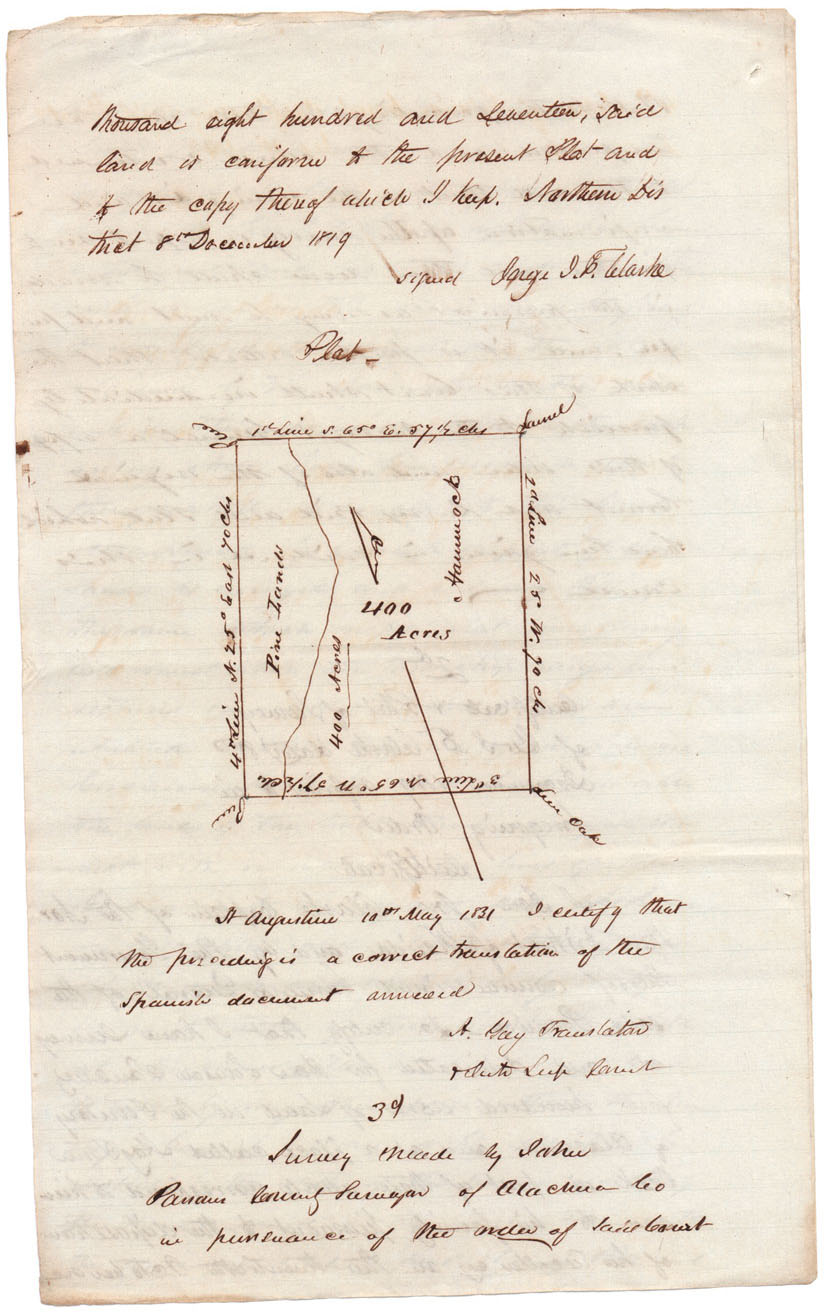 thousand eight hundred and Seventeen, said
land is conform to the present Plat and
to the copy thereof which I keep. Northern Dis
trict 8th December 1819
signed Jorge J. F. Clarke
Plat-
Pine
1st Line S. 65° E. 57 1/2 Chs
Laurel
2d Line 25° W. 70 Chs
Live Oak
3d Line N. 65° W 57 1/2 Chs.
Pine
4th Line N. 25° East 70 Chs
Pine Lands
400 Acres
Hammock
400
Acres
St Augustine 10th May 1831 I certify that
the preceding is a correct translation of the
Spanish document annexed
A. Gay Translator
Sup Court
3d
Survey made by John
Parsons County Surveyor of Alachua Co
in pursuance of the order of said Court